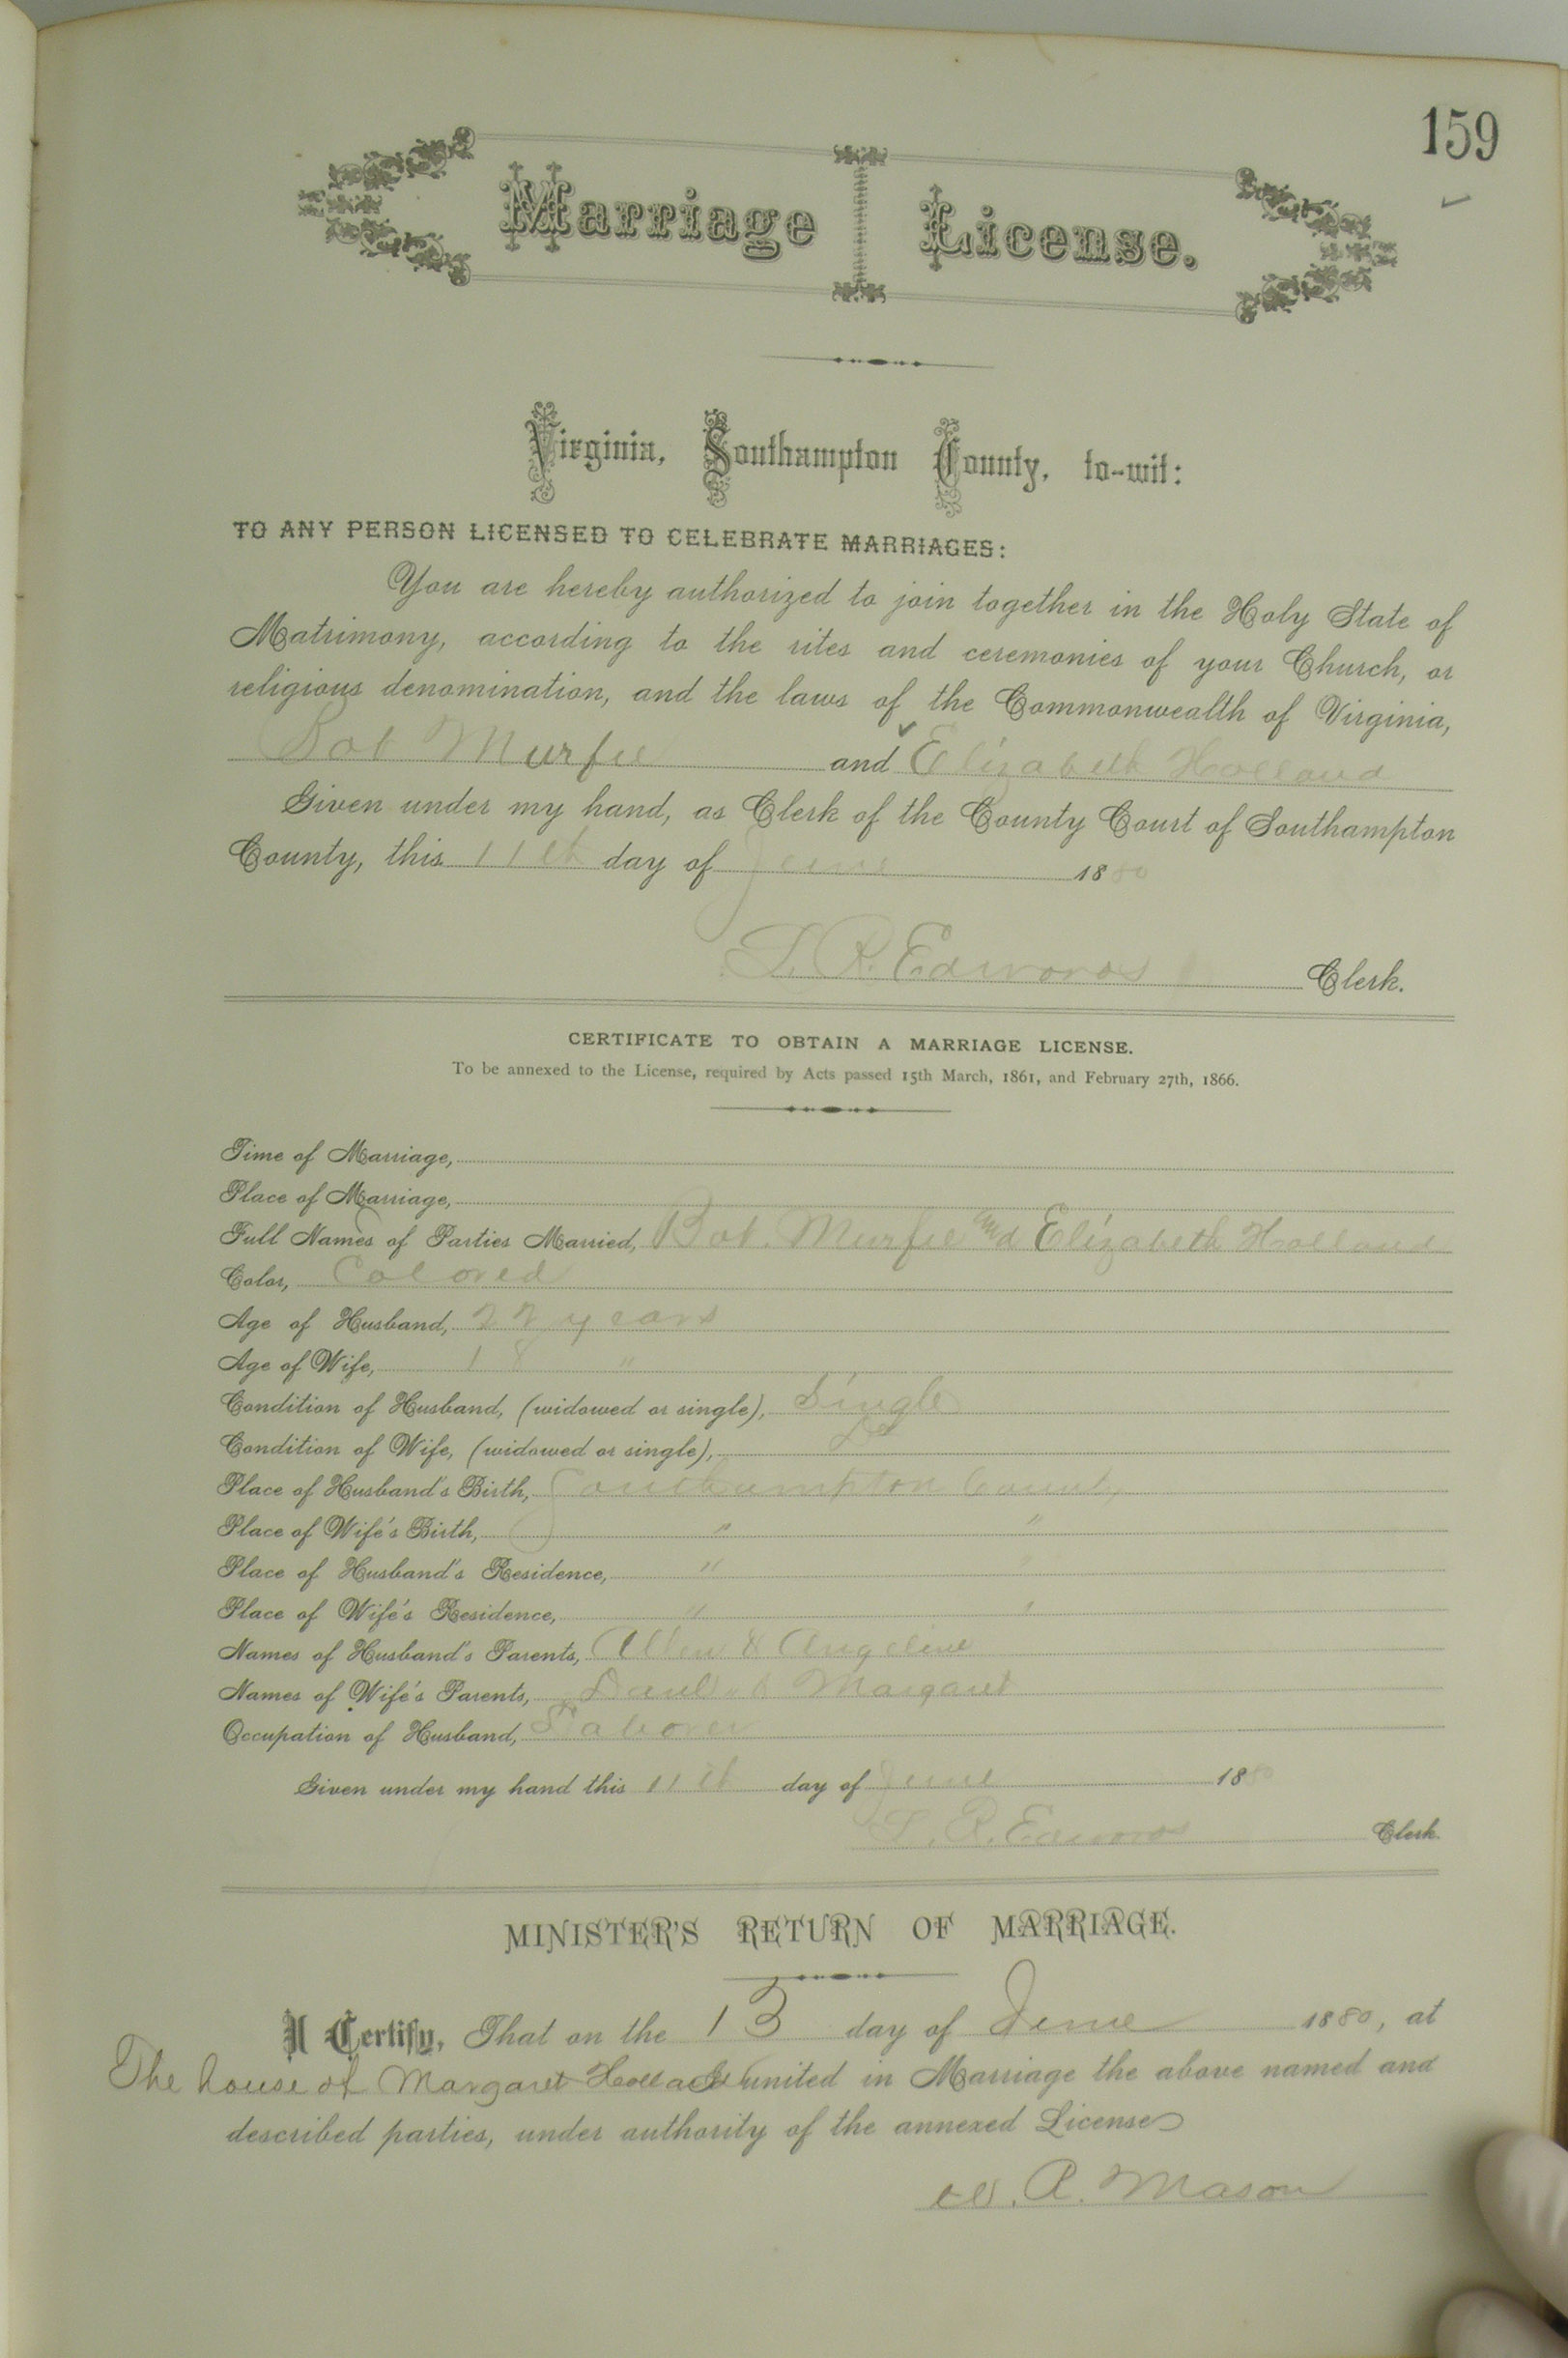 159
Marriage License.
Virginia, Southampton County, to-wit:
TO ANY PERSON LICENSED TO CELEBRATE MARRIAGES:
You are hereby authorized to join together in the Holy State of
Matrimony, according to the rites and ceremonies of your Church, or
religious denomination, and the laws of the Commonwealth of Virginia,
Bob Murfee and Elizabeth Holland
Given under my hand, as Clerk of the County Court of Southampton
County, this 11th day of June 1880
L. R. Edwards Clerk.
CERTIFICATE TO OBTAIN A MARRIAGE LICENSE.
To be annexed to the License, required by Acts passed 15th March, 1861, and February 27th, 1866.
Time of Marriage,
Place of Marriage,
Full Names of Parties Married, Bob Murfee and Elizabeth Holland
Color, Colored
Age of Husband, 22 years
Age of Wife, 18 "
Condition of Husband, (widowed or single), Single
Condition of Wife, (widowed or single), Do
Place of Husband's Birth, Southampton County
Place of Wife's Birth, " "
Place of Husband's Residence, " "
Place of Wife's Residence, " "
Names of Husband's Parents, Allen & Angeline
Names of Wife's Parents, & Margaret
Occupation of Husband, Laborer
Given under my hand this 11th day of June 1880
L. R. Edwards Clerk.
MINISTER'S RETURN OF MARRIAGE.
I Certify, That on the 13 day of June 1880, at
The house of Margaret Holland I united in Marriage the above named and
described parties, under authority of the annexed License
W. A. Mason